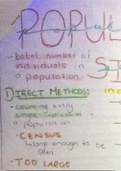 POPUL
- total number of
individuals in
a population.
S
① DIRECT METHODS:
- counting every
single individual in
a population
- CENSUS
↳ large enough to be
seen.
- TOO LARGE